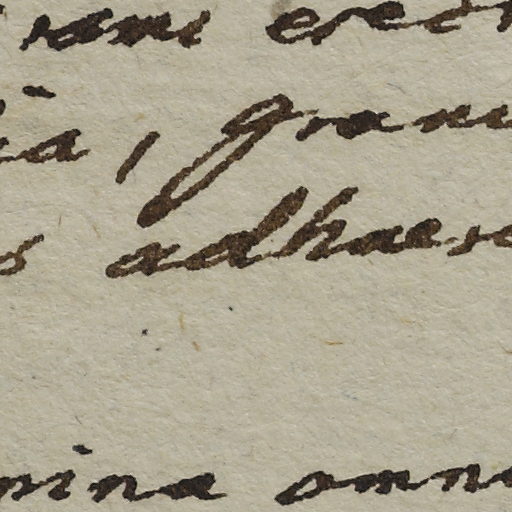 rami erec
ia, grani
s adhaere
mina omni